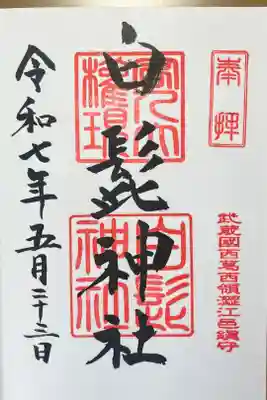 奉拝
武蔵國西葛西領澁江邑鎮守
客人大権現
白髭神社
白髭神社
令和七年五月二十三日